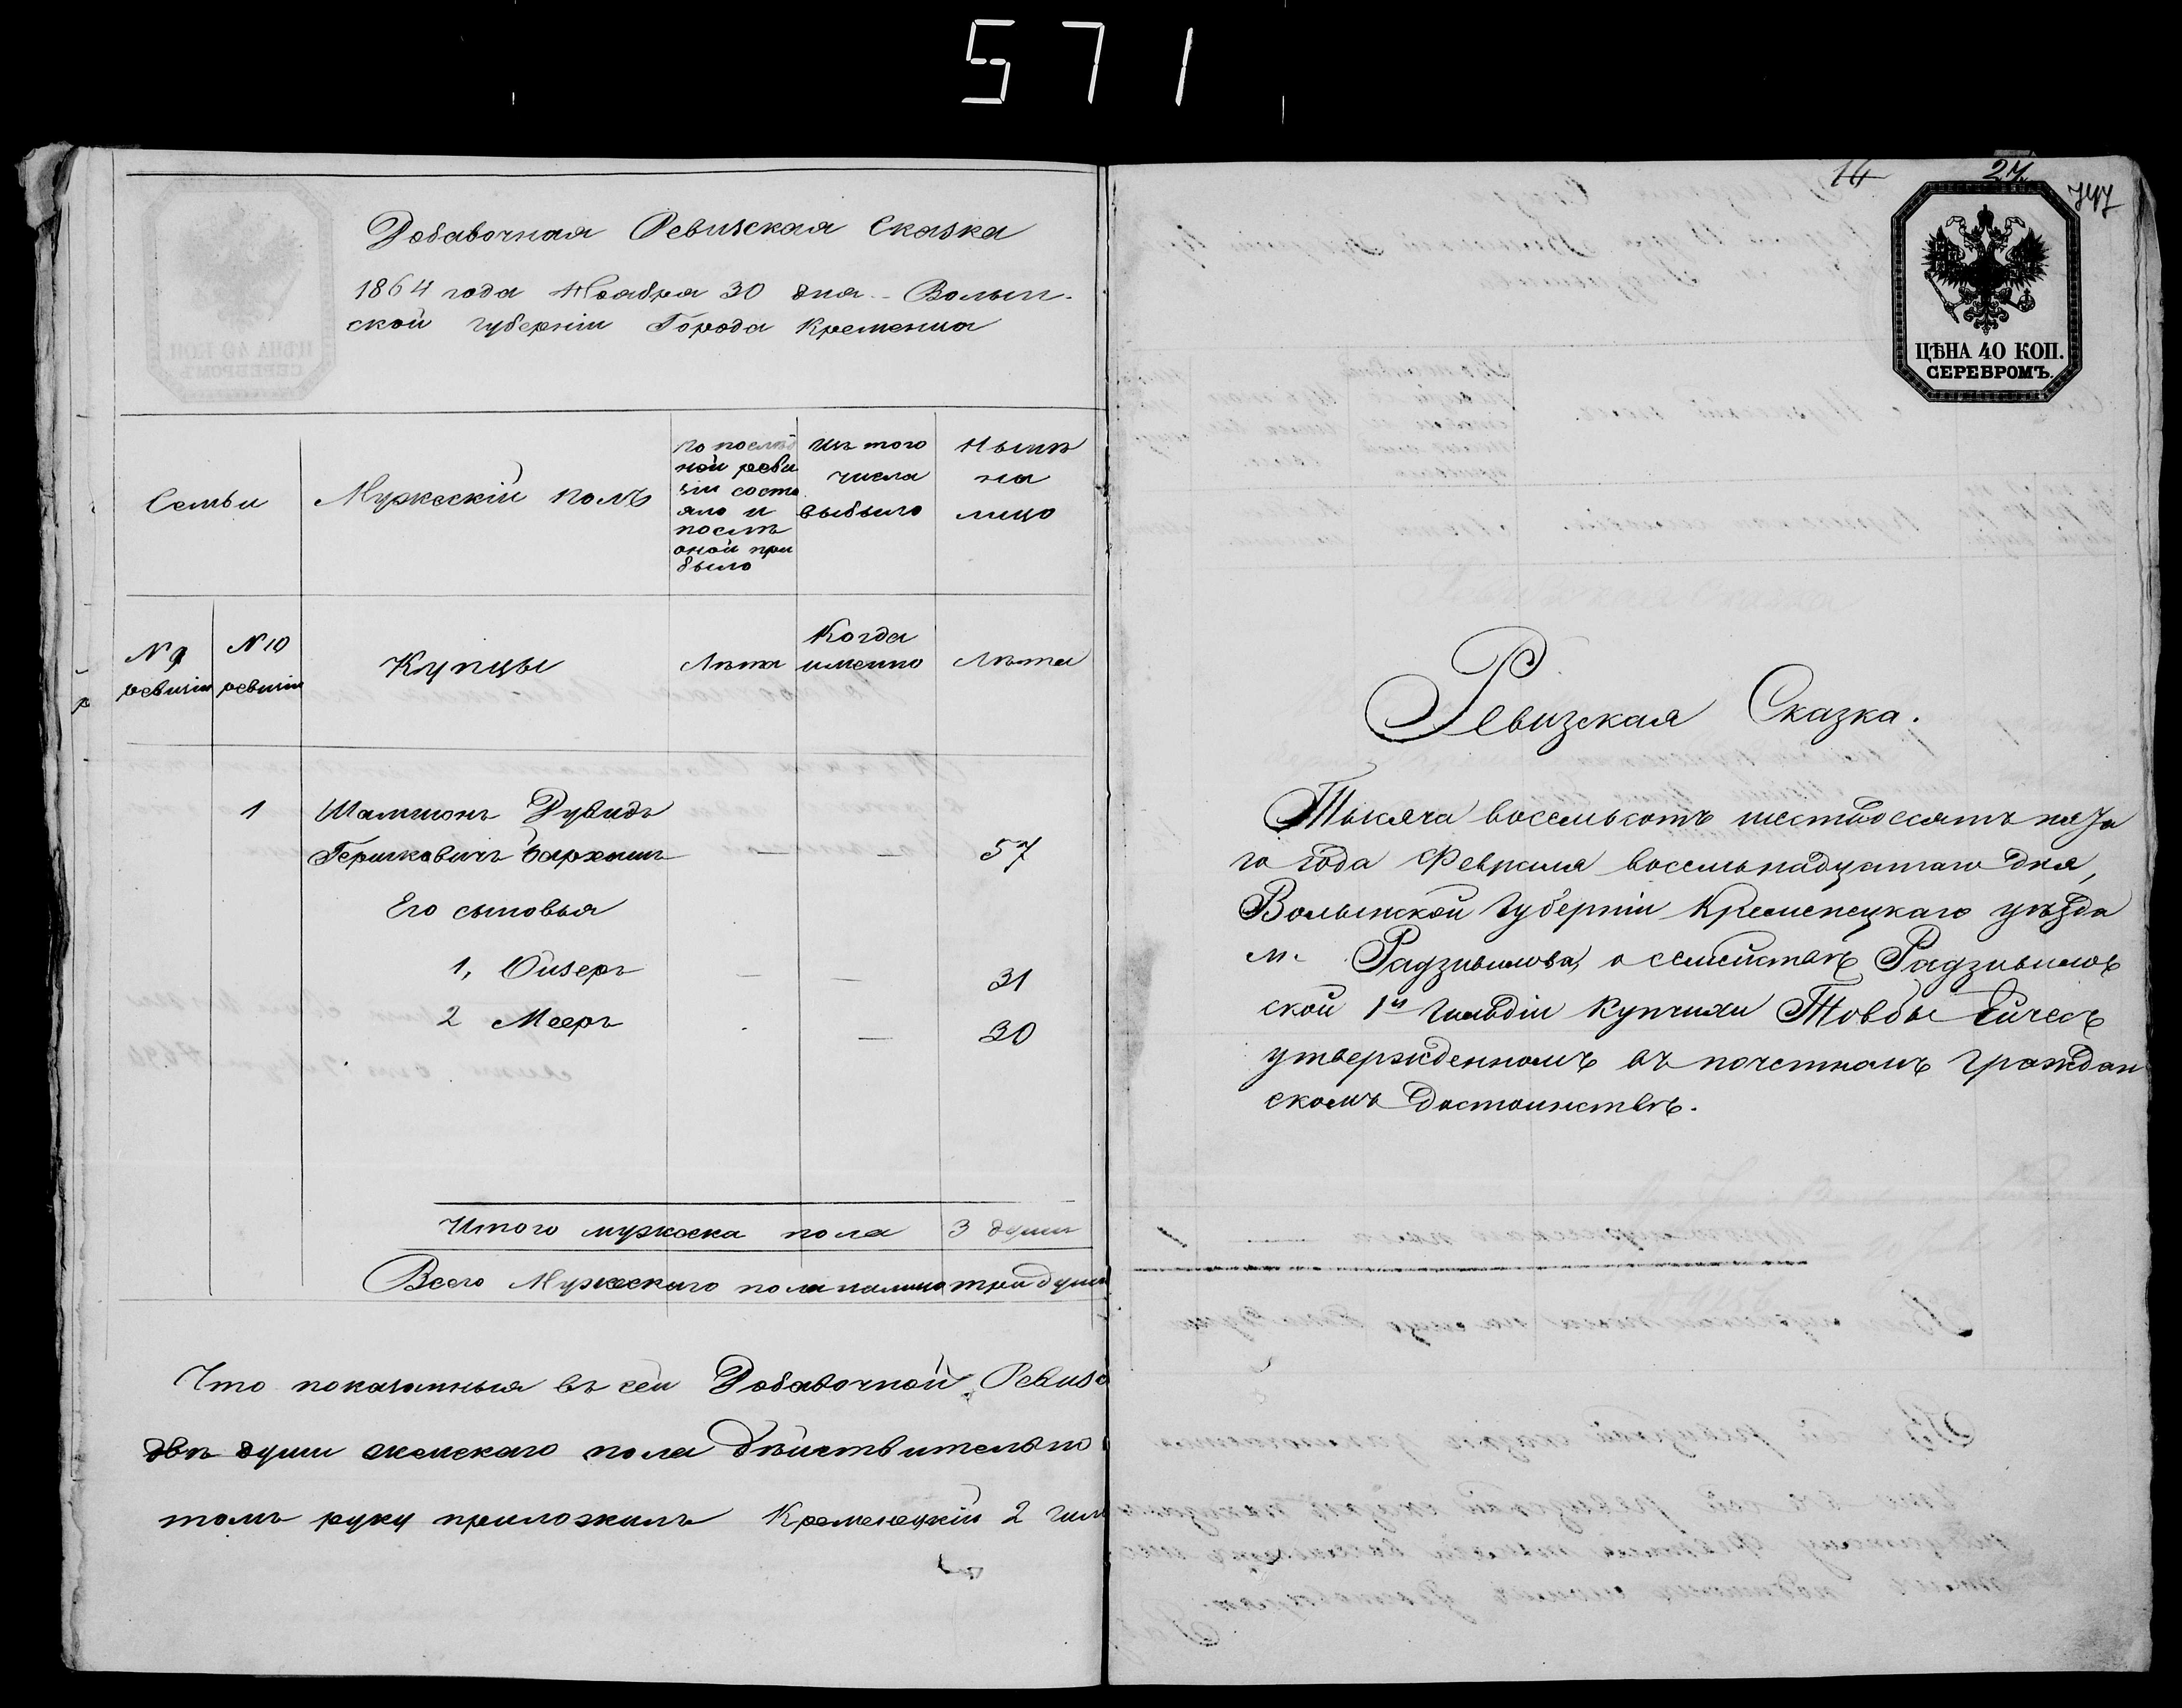 571
Добавочная Ревизская Сказка
1864 года Ноабра 30 дня - Волын-
ской губерніи Города Кременца
Семьи
Мужескій полъ
По послѣд
ной реви
зіи состо
яло и
послѣ
оной при
было
Изъ того
числа
выбыло
Нынѣ
на
лицо
N 9
ревизіи
N 10
ревизіи
Купцы
Лѣта
Когда
именно
Лѣта
1 Шамшонъ Дувидъ
Гершковичъ Бархашъ — — 57
Его сыновья
1, Ойзеръ — — 31
2 Мееръ — 30
Итого мужеска пола 3 души
Всего Мужескаго пола налицо три души
Что показанныя въ сей Добавочной Ревизс
двѣ души женскаго пола дѣйствительно
томъ руку приложилъ Кременецкій 2 гил
14 27
747
ЦѢНА 40 КОП.
СЕРЕБРОМЪ.
Ревизская Сказка.
Тысяча восемьсотъ шестьдесятъ пята
го года Февраля восемьнадцатаго дня,
Волынской Губерніи Кременецкаго уѣзда
м. Радзивилова, о семействѣ Радзивилов
ской 1й гильдіи Купчихи Товбы
утвержденномъ въ почетномъ граждан
скомъ достоинствѣ.